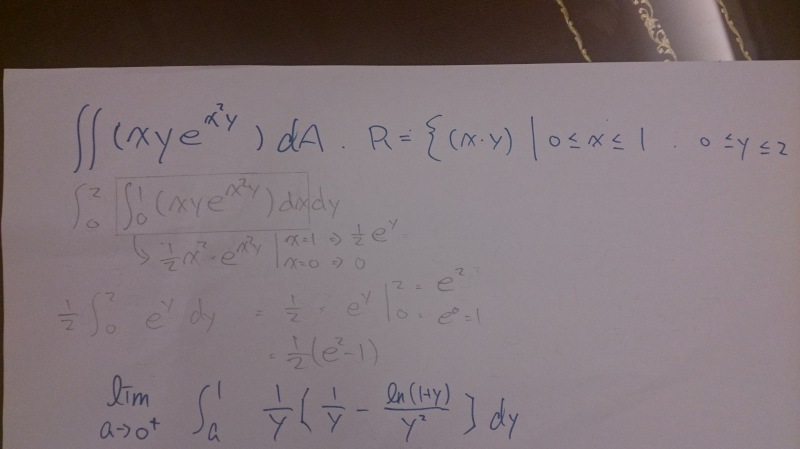 ∬(xye^{x²y})dA. R = {(x·y) | 0≤x≤1 . 0≤y≤2
∫₀² ∫₀¹ (xye^{x²y})dxdy
↳ ½x²·e^{x²y} | x=1 ⇒ ½e^y
x=0 ⇒ 0
½∫₀² e^y dy = ½ · e^y |₀² = e²
= e⁰=1
= ½(e²-1)
lim_{a→0⁺} ∫ₐ¹ 1/y [ 1/y - ln(1+y)/y² ] dy